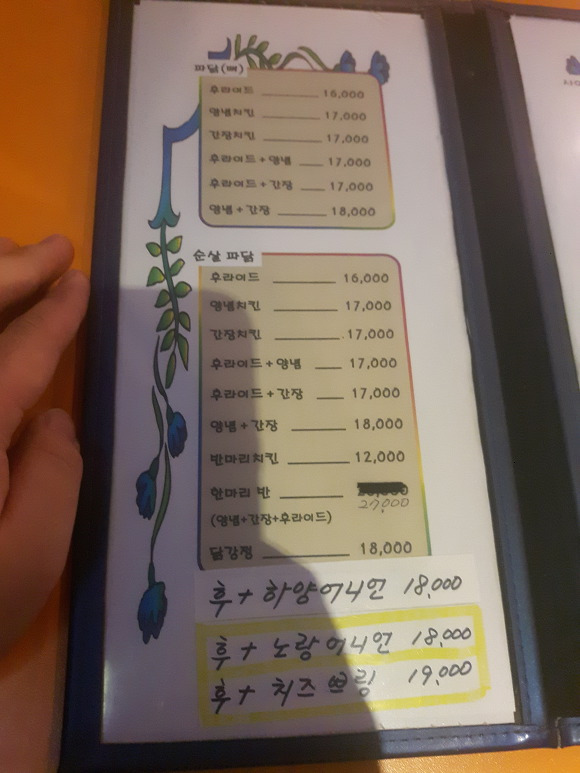 파닭(뼈)
후라이드 16,000
양념치킨 17,000
간장치킨 17,000
후라이드+양념 17,000
후라이드+간장 17,000
양념+간장 18,000
순살 파닭
후라이드 16,000
양념치킨 17,000
간장치킨 17,000
후라이드+양념 17,000
후라이드+간장 17,000
양념+간장 18,000
반마리치킨 12,000
한마리 반 27,000
(양념+간장+후라이드)
닭강정 18,000
후+하양어니언 18,000
후+노랑어니언 18,000
후+치즈쁘링 19,000